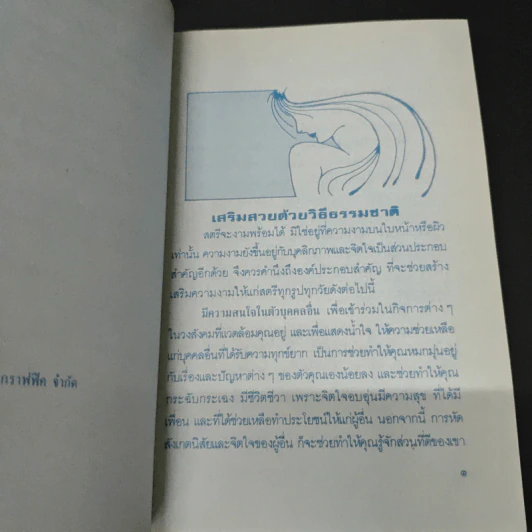 กราฟฟิค จำกัด
เสริมสวยด้วยวิธีธรรมชาติ
สตรีจะงามพร้อมได้ มิใช่อยู่ที่ความงามบนใบหน้าหรือผิว
เท่านั้น ความงามยังขึ้นอยู่กับบุคลิกภาพและจิตใจเป็นส่วนประกอบ
สำคัญอีกด้วย จึงควรคำนึงถึงองค์ประกอบสำคัญ ที่จะช่วยสร้าง
เสริมความงามให้แก่สตรีทุกรูปทุกวัยดังต่อไปนี้
มีความสนใจในตัวบุคคลอื่น เพื่อเข้าร่วมในกิจการต่าง ๆ
ในวงสังคมที่แวดล้อมคุณอยู่ และเพื่อแสดงน้ำใจ ให้ความช่วยเหลือ
แก่บุคคลอื่นที่ได้รับความทุกข์ยาก เป็นการช่วยทำให้คุณหมกมุ่นอยู่
กับเรื่องและปัญหาต่าง ๆ ของตัวคุณเองน้อยลง และช่วยทำให้คุณ
กระฉับกระเฉง มีชีวิตชีวา เพราะจิตใจอบอุ่นมีความสุข ที่ได้มี
เพื่อน และที่ได้ช่วยเหลือทำประโยชน์ให้แก่ผู้อื่น นอกจากนี้ การหัด
สังเกตนิสัยและจิตใจของผู้อื่น ก็จะช่วยทำให้คุณรู้จักส่วนที่ดีของเขา
๑